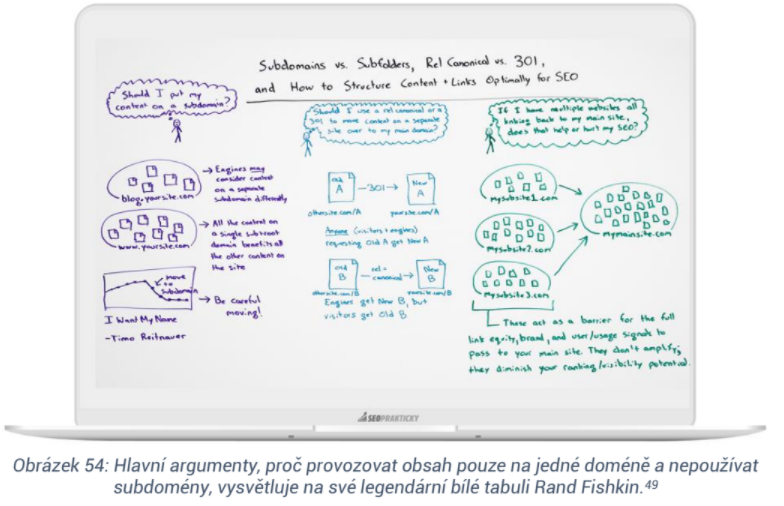 Subdomains vs. Subfolders, Rel Canonical vs. 301,
and How to Structure Content + Links Optimally for SEO
Should I put my
content on a subdomain?
blog.yoursite.com
→ Engines may
consider content
on a separate
subdomain differently
www.yoursite.com
→ All the content on
a single sub+root
domain benefits all
the other content on
the site
move
to
subdomain
→ Be careful
moving!
I Want My Name
-Timo Reitnauer
Should I use a rel canonical or a
301 to move content on a separate
site over to my main domain?
Old
A
—301→
New
A
othersite.com/A
yoursite.com/A
Anyone (visitors + engines)
requesting Old A get New A
Old
B
rel=
canonical
New
B
othersite.com/B
yoursite.com/B
Engines get New B, but
visitors get Old B
If I have multiple websites all
linking back to my main site,
does that help or hurt my SEO?
mysubsite1.com
mysubsite2.com
mysubsite3.com
mymainsite.com
These act as a barrier for the full
link equity, brand, and user/usage signals to
pass to your main site. They don't amplify;
they diminish your ranking/visibility potential.
SEOPRAKTICKY
Obrázek 54: Hlavní argumenty, proč provozovat obsah pouze na jedné doméně a nepoužívat
subdomény, vysvětluje na své legendární bílé tabuli Rand Fishkin.⁴⁹